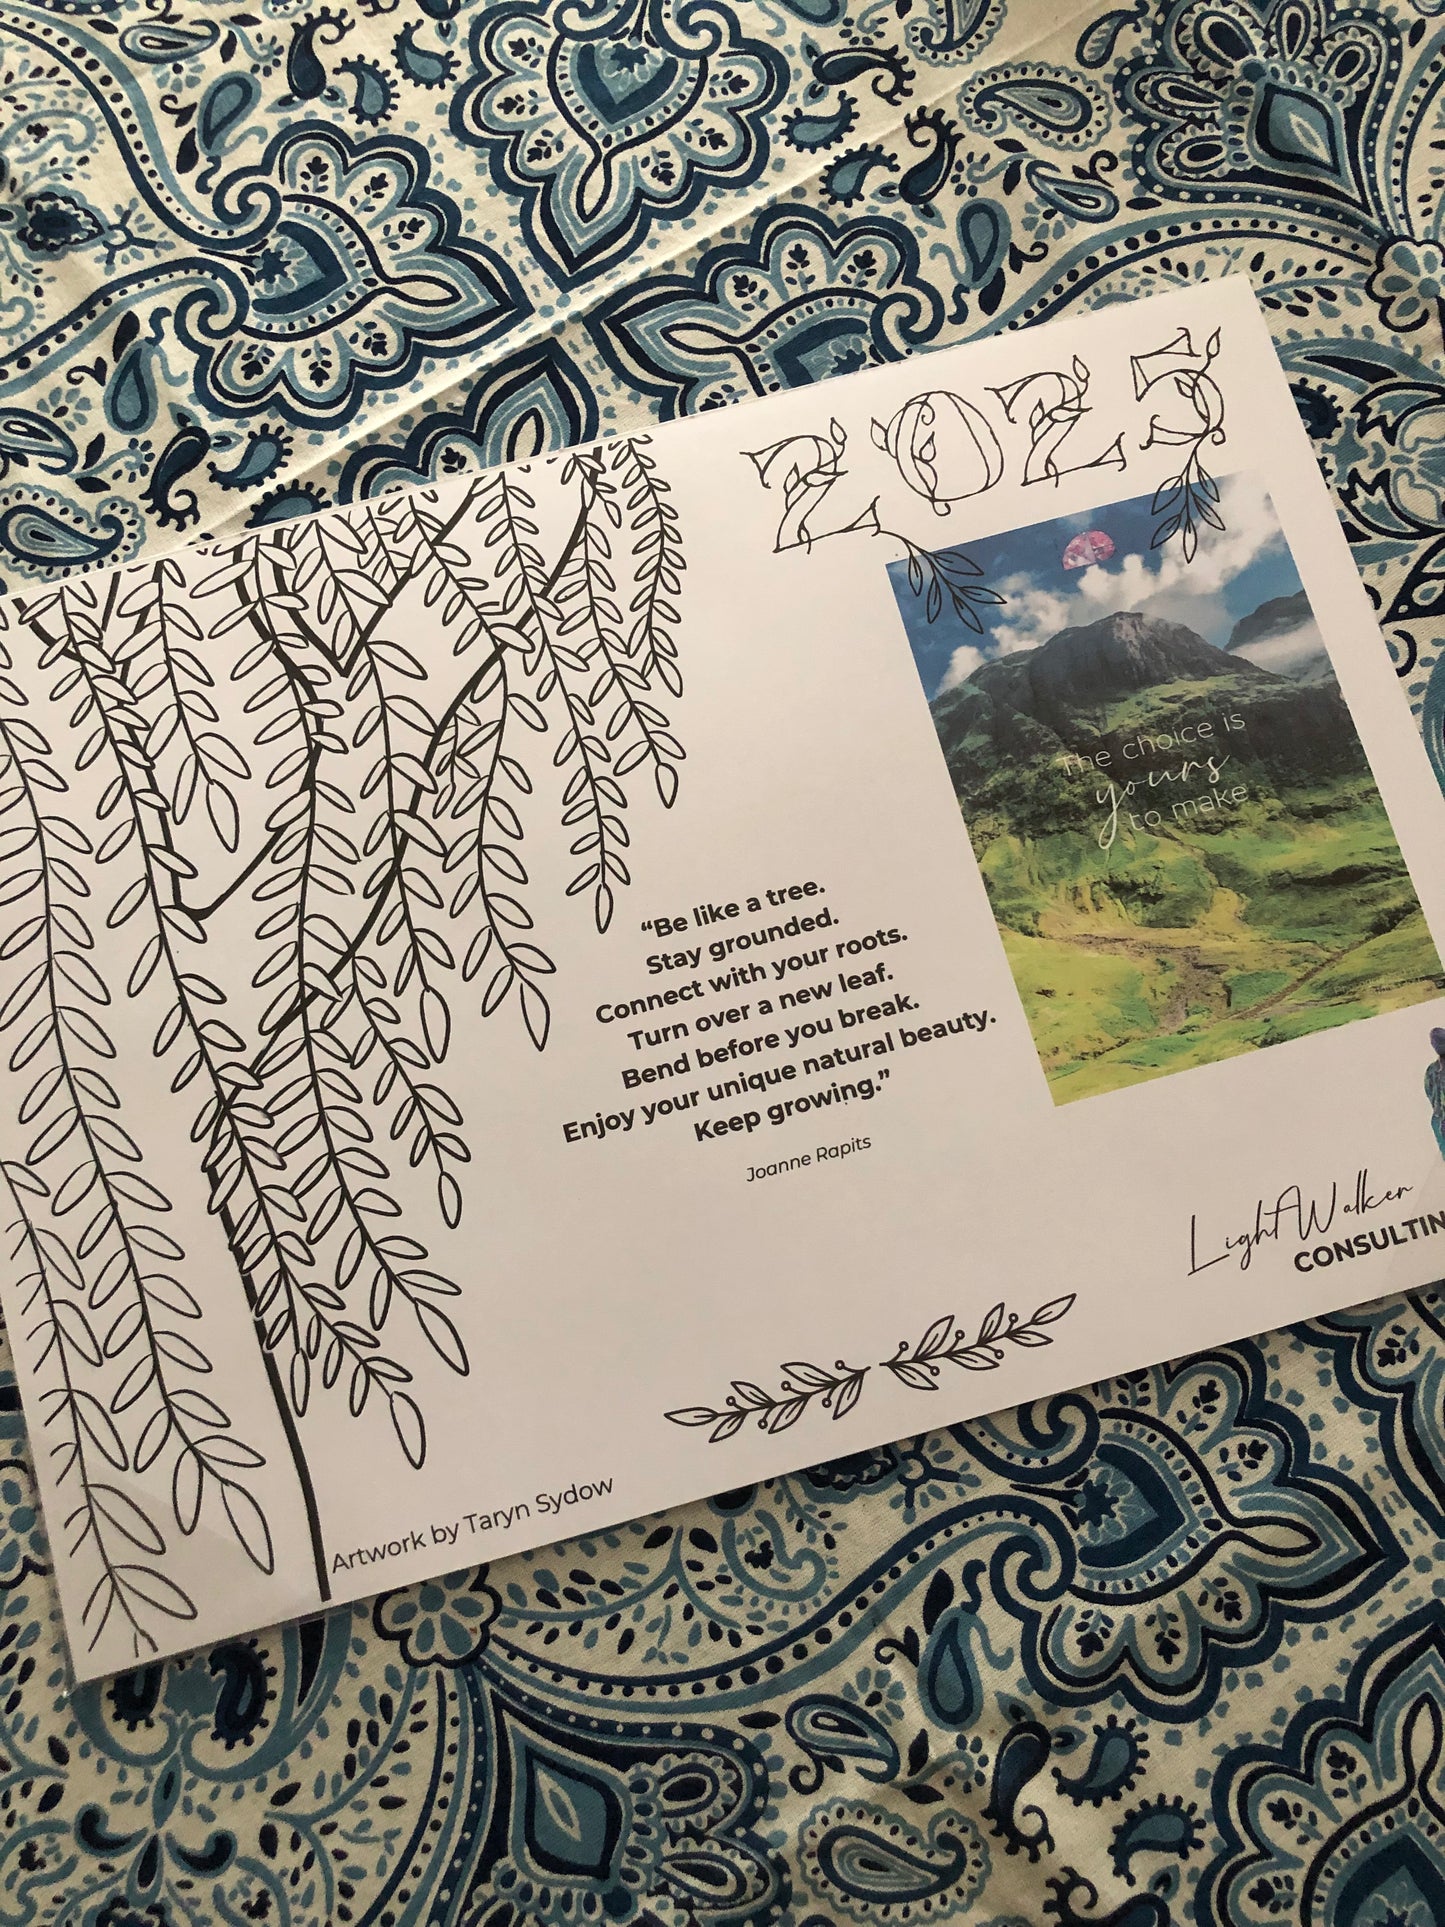 2025
The choice is
yours
to make
“Be like a tree.
Stay grounded.
Connect with your roots.
Turn over a new leaf.
Bend before you break.
Enjoy your unique natural beauty.
Keep growing.”
Joanne Rapits
LightWalker
CONSULTIN
Artwork by Taryn Sydow